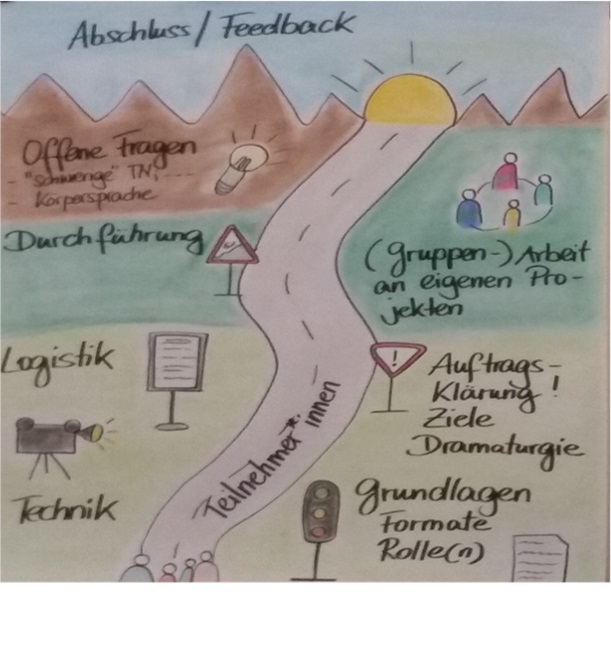 Abschluss / Feedback
Offene Fragen
- "schwierige" TN, ----
- Körpersprache
Durchführung
(Gruppen-) Arbeit
an eigenen Pro-
jekten
Logistik
!
Auftrags-
Klärung!
Ziele
Dramaturgie
Teilnehmer*innen
Technik
Grundlagen
Formate
Rolle(n)